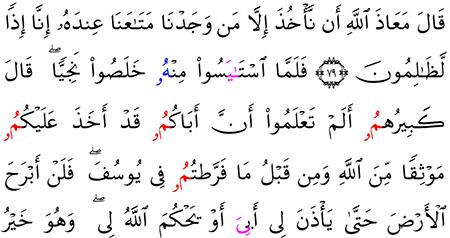 قَالَ مَعَاذَ ٱللَّهِ أَن نَّأْخُذَ إِلَّا مَن وَجَدْنَا مَتَٰعَنَا عِندَهُۥ إِنَّا إِذًا
لَّظَٰلِمُونَ ﴿٧٩﴾ فَلَمَّا ٱسْتَٰيَسُوا۟ مِنْهُۥ خَلَصُوا۟ نَجِيًّاۖ قَالَ
كَبِيرُهُمُۥ أَلَمْ تَعْلَمُوا۟ أَنَّ أَبَاكُمُۥ قَدْ أَخَذَ عَلَيْكُمُۥ
مَوْثِقًا مِّنَ ٱللَّهِ وَمِن قَبْلُ مَا فَرَّطتُمُۥ فِي يُوسُفَۖ فَلَنْ أَبْرَحَ
ٱلْأَرْضَ حَتَّىٰ يَأْذَنَ لِي أَبِيَ أَوْ يَحْكُمَ ٱللَّهُ لِيۖ وَهُوَ خَيْرُ